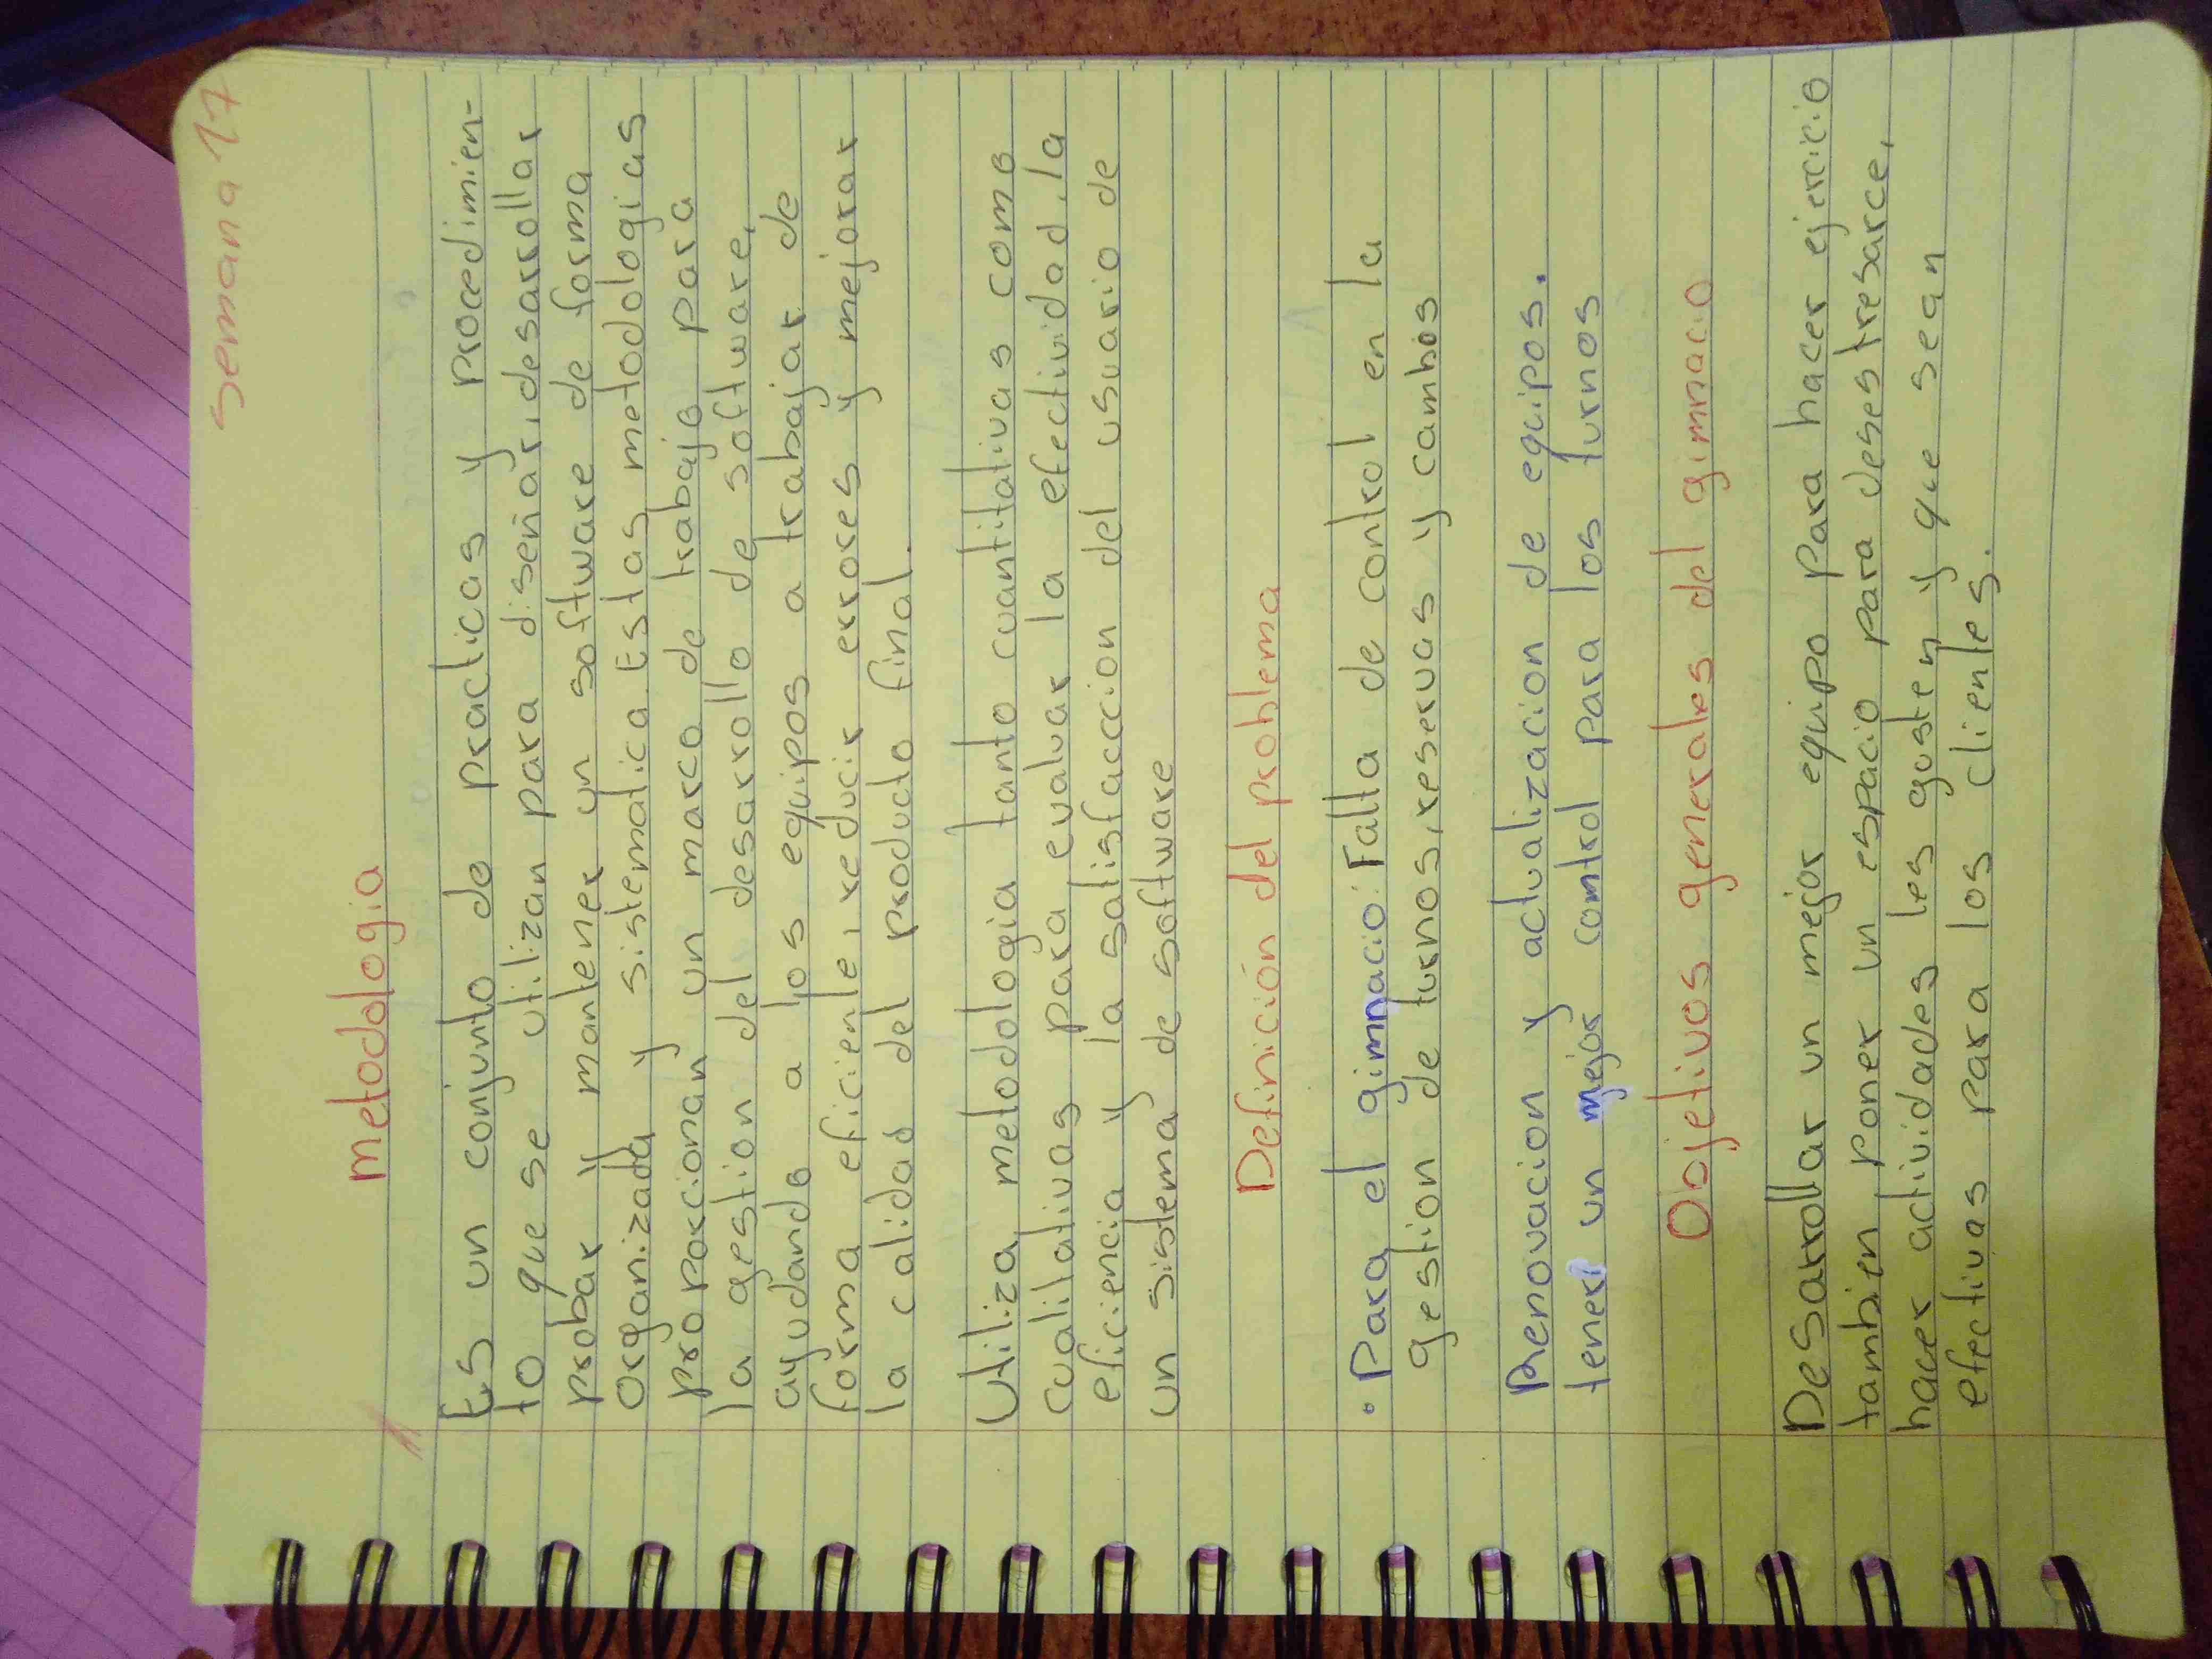 semana 17
metodologia
Es un conjunto de practicas y procedimien-
to que se utilizan para diseñar, desarrollar
probar y mantener un software de forma
organizada y sistematica. Estas metodologias
proporcionan un marco de trabajo para
la gestion del desarrollo de software,
ayudando a los equipos a trabajar de
forma eficiente, reducir errores y mejorar
la calidad del producto final.
Utiliza metodologia tanto cuantitativas como
cualitativas para evaluar la efectividad, la
eficiencia y la satisfaccion del usuario de
un sistema de software
Definición del problema
• Para el gimnacio: Falta de control en la
gestion de turnos, reservas y cambios
Renovacion y actualizacion de equipos.
tener un mejor control para los turnos
Objetivos generales del gimnacio
Desarrollar un mejor equipo para hacer ejercicio
tambien poner un espacio para desestresarce,
hacer actividades les gusten y que sean
efectivas para los clientes.